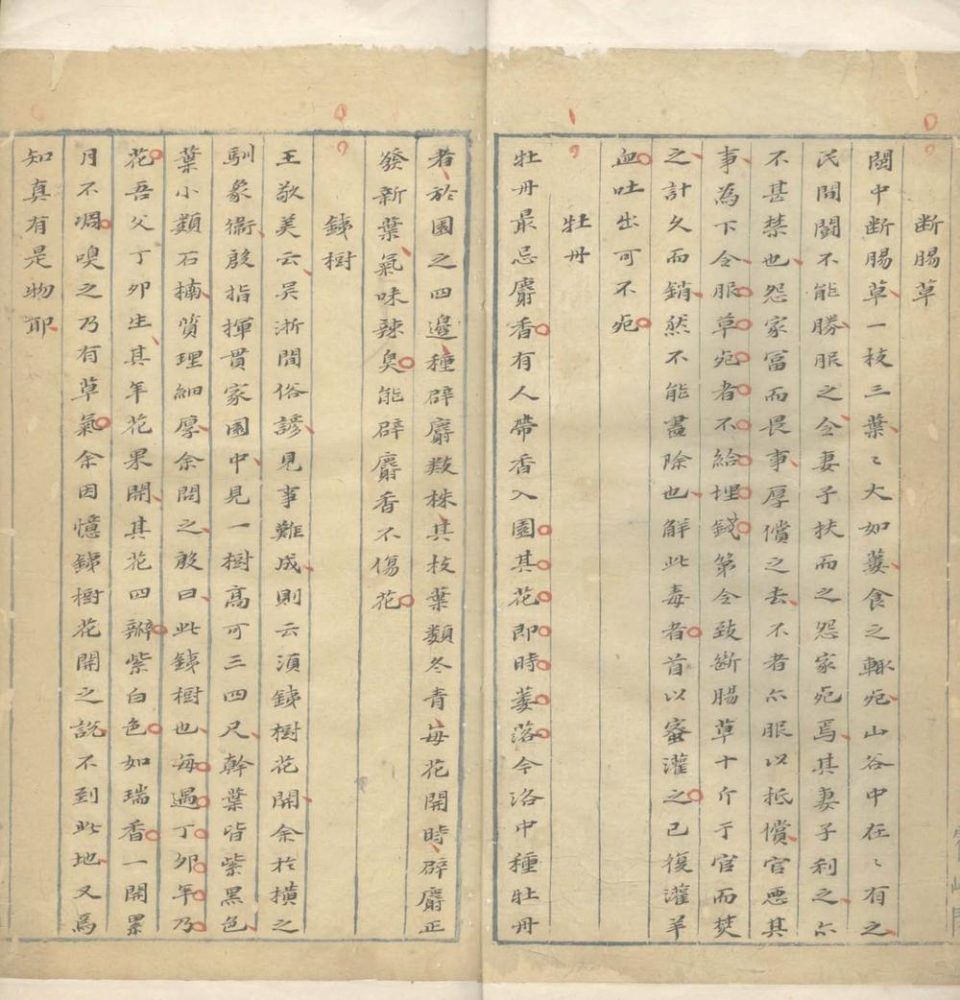 断腸草
閩中断腸草一枝三葉〻大如蔞食之輙死山谷中在〻有之
民間鬪不能勝服之令妻子扶而之怨家死焉其妻子利之亦
不甚禁也怨家富而畏事厚償之去不者亦服以抵償官悪其
事為下令服草死者不給埋錢第令致断腸草十斤于官而焚
之計久而銷然不能盡除也解此毒者首以蜜灌之已復灌羊
血吐出可不死
牡丹
牡丹最忌麝香有人帶香入園其花即時萎落今洛中種牡丹
者於園之四邉種辟麝數株其枝葉類冬青每花開時辟麝正
發新葉氣味辣臭能辟麝香不傷花
鉄樹
王敬美云吴浙間俗諺見事難成則云湏鉄樹花開余於横之
馴象衛殷指揮貫家園中見一樹高可三四尺幹葉皆紫黑色
葉小類石楠質理細厚余問之殷曰此鉄樹也每過丁卯年乃
花吾父丁卯生其年花果開其花四瓣紫白色如瑞香一開累
月不凋嗅之乃有草氣余因憶鉄樹花開之説不到此地又爲
知真有是物耶